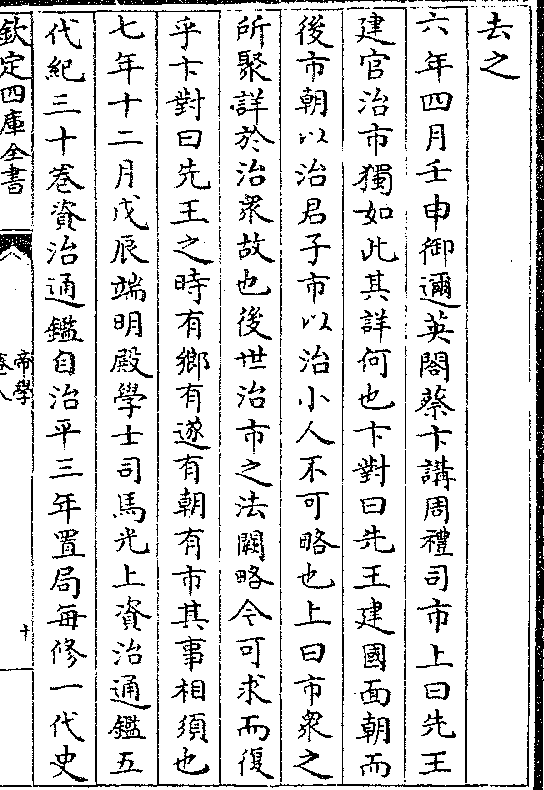 去之
六年四月壬申御邇英閣蔡卞講周禮司市上曰先王
建官治市獨如此其詳何也卞對曰先王建國面朝而
後市朝以治君子市以治小人不可略也上曰市衆之
所聚詳於治衆故也後世治市之法闕略今可求而復
乎卞對曰先王之時有鄉有遂有朝有市其事相須也
七年十二月戊辰端明殿學士司馬光上資治通鑑五
代紀三十卷資治通鑑自治平三年置局每修一代史
欽定四庫全書
帝學
卷八
十